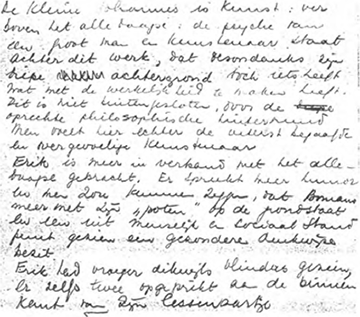 De Kleine Johannes is Kunst: ver
boven het alledaagse: de psyche van
een groot man en Kunstenaar staat
achter dit werk, dat desondanks zijn
diepe achtergrond toch iets heeft
wat met de werkelijkheid te maken heeft.
Dit is niet buitengesloten, voor de
oprechte philosophische
Men voelt hier echter de uiterst begaafde
en overgevoelige Kunstenaar
Erik is meer in verband met het alle-
daagse gebracht. Er spreekt meer humor
en men zou kunnen zeggen, dat Bomans
meer met zijn "poten" op de grond staat
en een uit menselijk en sociaal stand
punt gezien een gezondere denkwijze
bezit
Erik had vroeger dikwijls vlinders gezien,
er zelfs twee opgeprikt aan de binnen
kant van zijn lessenaartje